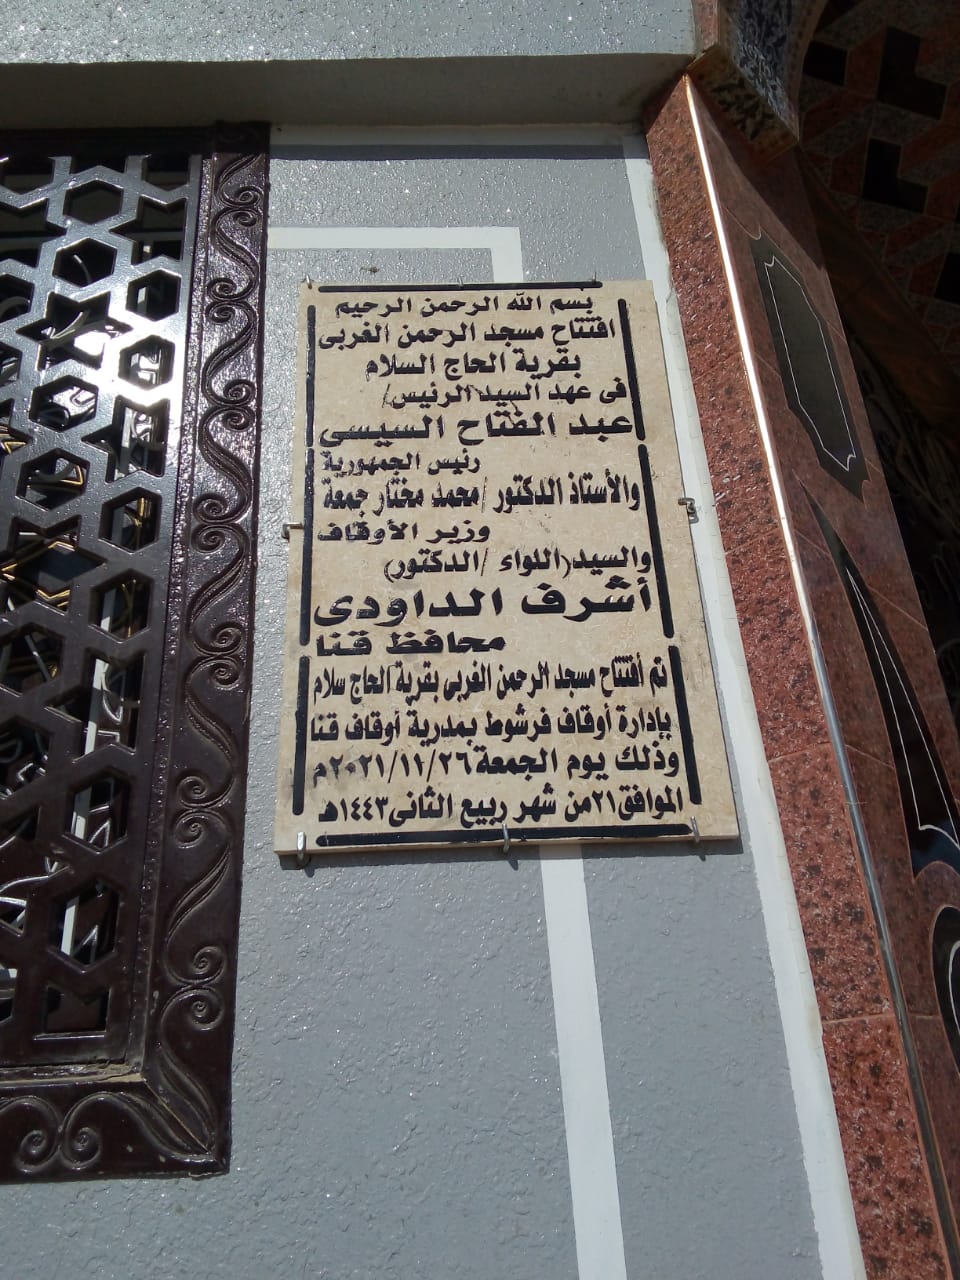 بسم الله الرحمن الرحيم
افتتاح مسجد الرحمن الغربى
بقرية الحاج السلام
فى عهد السيد(الرئيس/
عبد الفتاح السيسي
رئيس الجمهورية
والأستاذ الدكتور /محمد مختار جمعة
وزير الأوقاف
والسيد(اللواء /الدكتور)
أشرف الداودى
محافظ قنا
تم أفتتاح مسجد الرحمن الغربى بقرية الحاج سلام
بإدارة أوقاف فرشوط بمدرية أوقاف قنا
وذلك يوم الجمعة٢٠٢١/١١/٢٦م
الموافق٢١من شهر ربيع الثانى١٤٤٣هـ